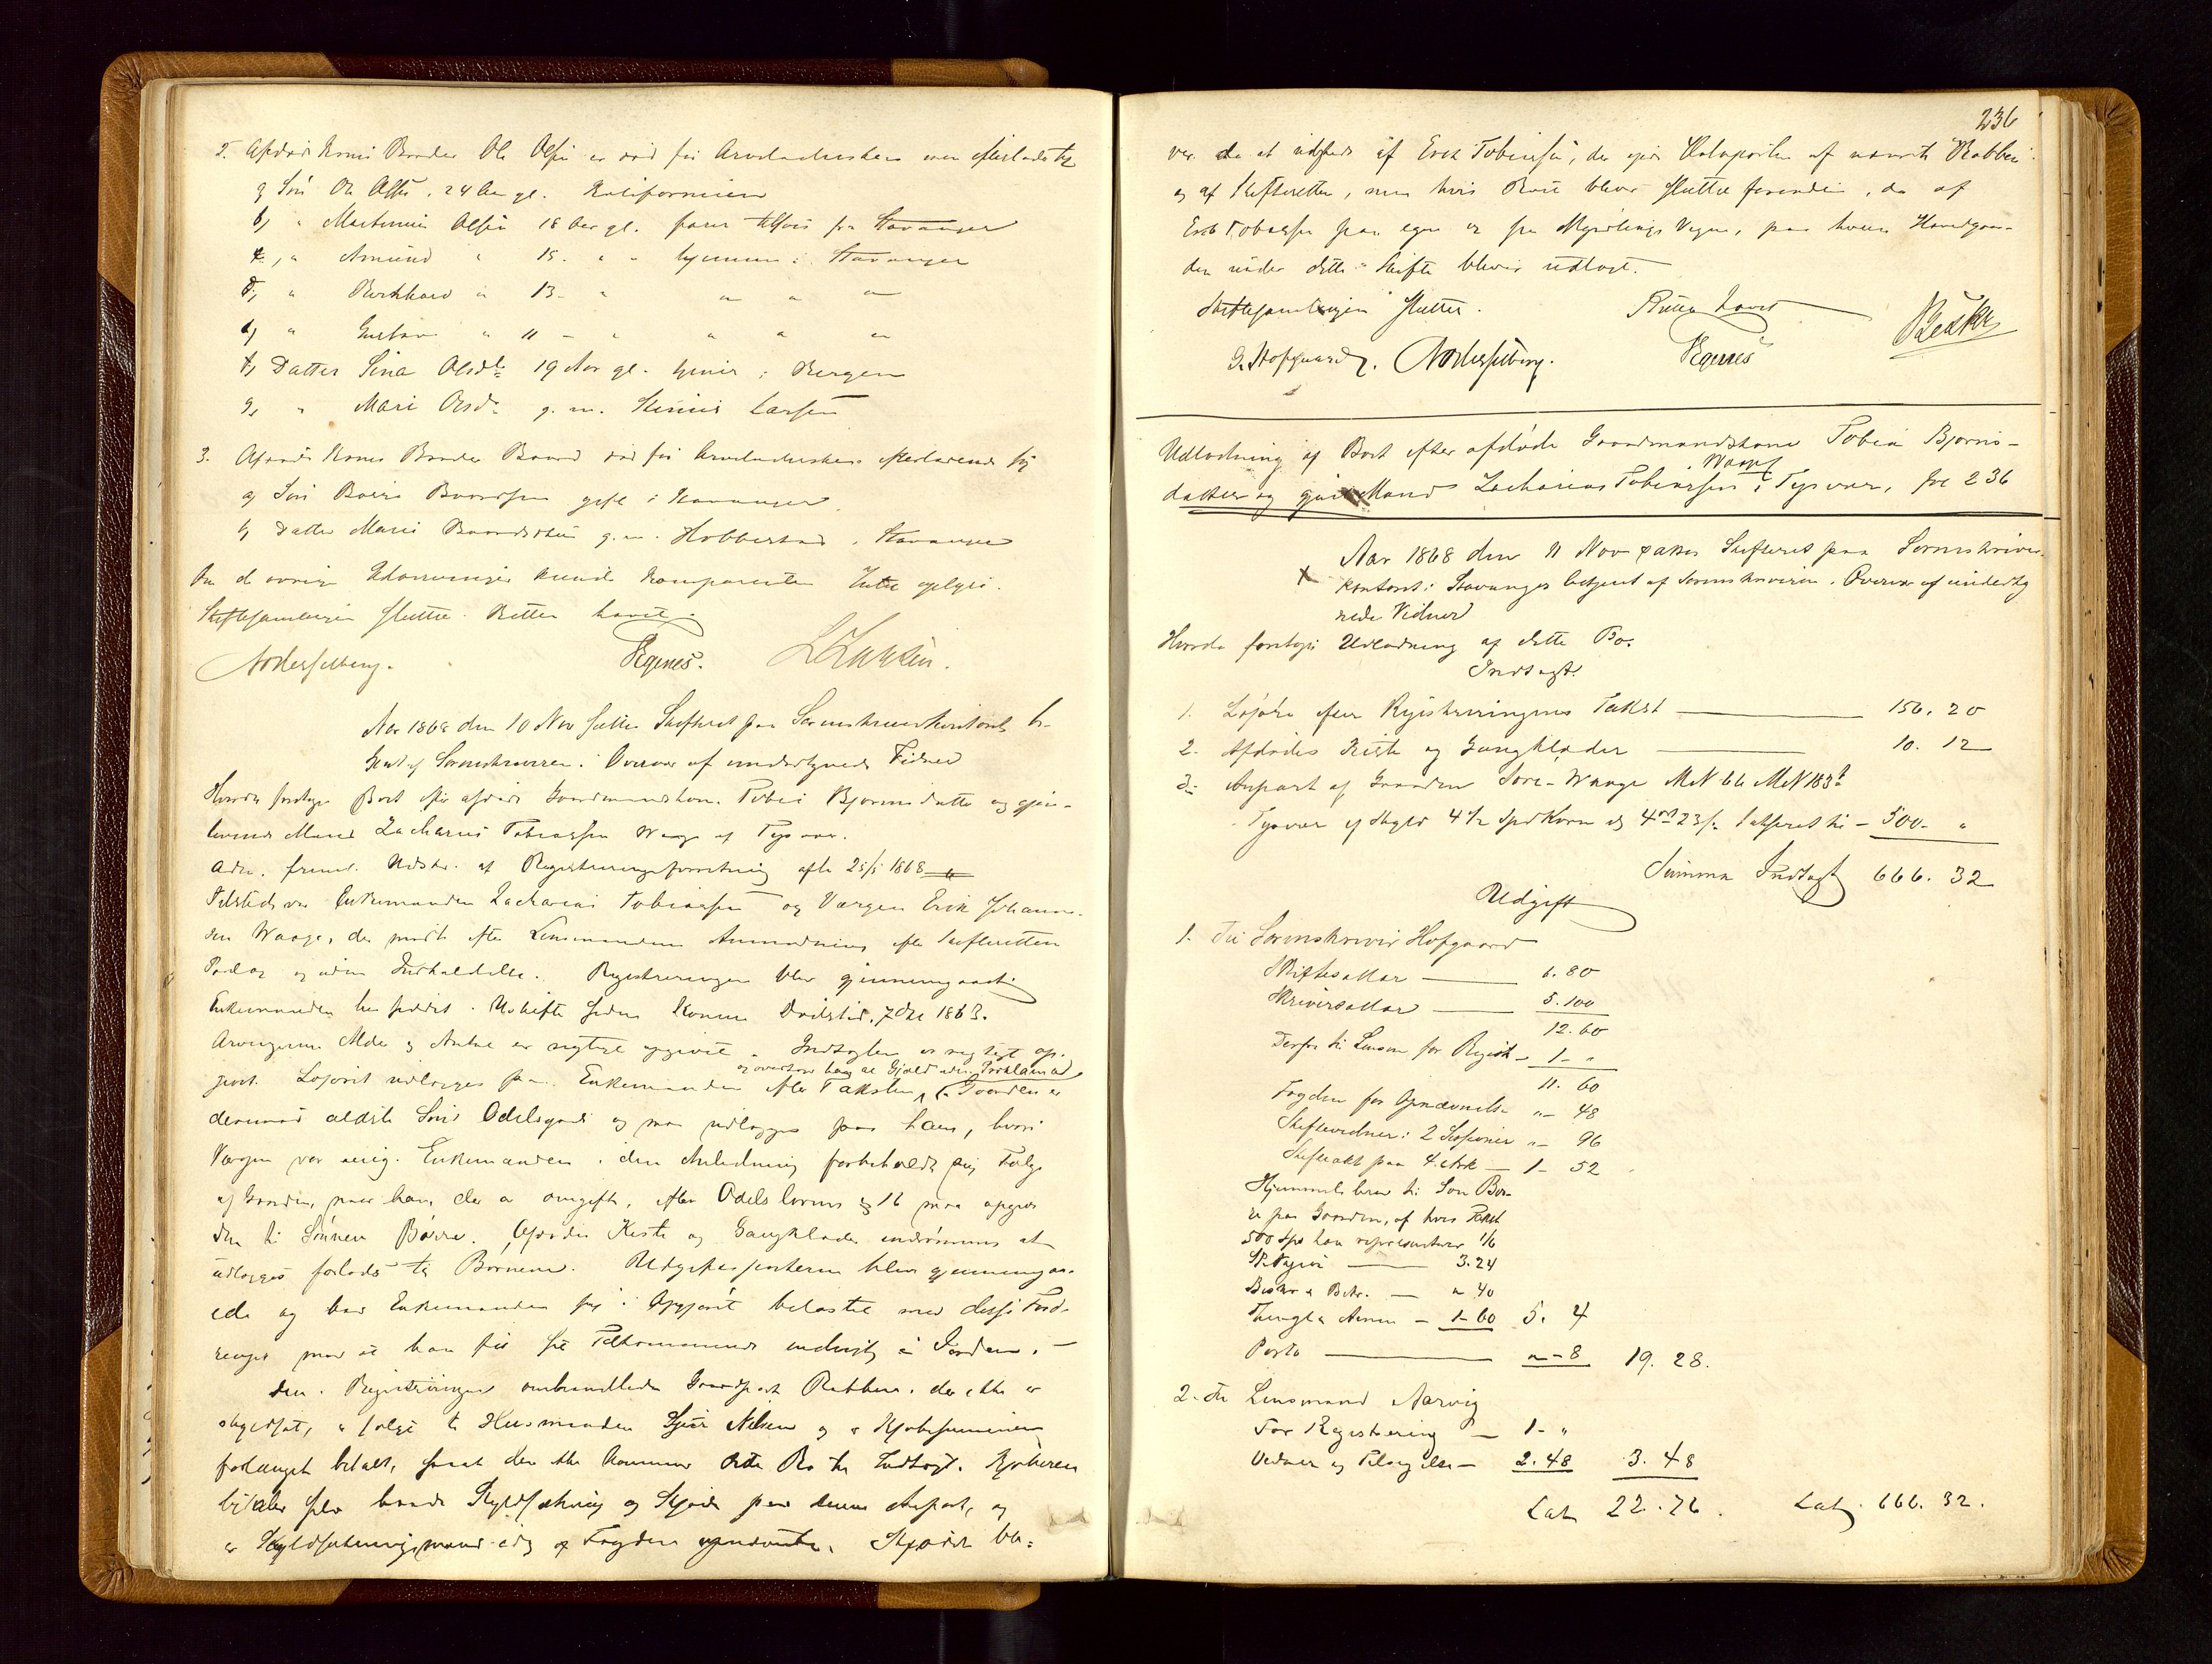 2. Afdøde Kones Broder Ole Olsen er død før Arveladersken men efterladt sig
a, Søn Ole Olsen, 24 Aar gl. Kalifornien
b, " Martinius Olsen 18 Aar gl. farer tilsøes fra Stavanger
c, " Amund " 15 - " " hjemme i Stavanger
d, " Burkhard " 13 - " " " "
e, " Gustav " 11 - " " " "
f, Datter Sina Olsdtr 19 Aar gl. tjener i Bergen
g, " Mari Olsdr g. m. Larsen
3. Afdøde Kones Broder Baard død før Arveladersken efterladende sig
a, Søn Baard Baardsen gift i Stavanger
b, Datter Mari Baardsdtr g. m. Hobberstad, Stavanger
De øvrige kunde Komparenten ikke opgive.
Skiftesamlingen sluttet. Retten hævet.
Nodersetberg. Egenes. L. Larsen.
Aar 1868 den 10 Nov sattes Skifteret paa Sorenskriverkontoret be-
tjent af Sorenskriveren i Overvær af undertegnede Vidner
Hvorda foretoges Boet efter afdøde Gaardmandskone Tobia Bjørnsdatter og gjen-
levende Mand Zacharias Tobiassen Waage af Tysvær.
Adm. freml. Udskr. af Registreringsforretning afh. 25/5 1868
Tilstede var Enkemanden Zacharias Tobiassen og Værgen Erik Johannes-
sen Waage, der mødte efter Lensmandens Anmodning efter Skifterettens
Paalæg og uden Indkaldelse. Registreringen blev gjennemgaaet.
Enkemanden har siddet i Uskifte siden Konens Dødstid, 7 Dbr 1863.
Arvingernes Alder og Antal er rigtigt opgivet. Indtægten er rigtigt op-
og overtager han al Gjæld uden Proklama
gjort. Løsøret udlægges paa Enkemanden efter Taksten, Gaarden er
derimod ældste Søns Odelsgods og maa udlægges paa ham, hvori
Værgen var enig. Enkemanden i den Anledning forbeholdt sig Følge
af Gaarden, naar han, der er omgift, efter Odelslovens § 16 maa opgive
den til Sønnen Børre. Afdødes Kiste og Gangklæder indrømmes at
udlægges forlods til Børnene. Udgiftsposterne blev gjennemgaa-
ede og bad Enkemanden sig i Opgjøret belastet med disse Ford-
ringer mod at han fik sit Tilkommende endvidere i Jorden. -
Den i Registreringen ombehandlede Gaardpart Rabben, der ikke er
skyldsat, er solgt til Husmanden Nilsen og er Kjøbesummen
forlængst betalt, saaat den ikke kommer dette Bo til Indtægt. Kjøberen
betaler selv baade Skyldsætning og Skjøde paa denne Anpart, og
er Skyldsætningsmænd idag af Fogden opnævnte. Skjødet bli-
236
ver da at udstede af Erik Tobiassen, der ejer Halvparten af nævnte "Rabben"
og af Skifteretten, men hvis Boet bliver sluttet forinden, da af
Erik Tobiassen paa egne og paa Myndlings Vegne, paa hvem Hovedgaar-
den under dette Skifte bliver udlagt.
Skiftesamlingen sluttet. Retten hævet
G. Hofgaard. Nodersetberg. Egenes
Udlodning af Boet efter afdøde Gaardmandskone Tobia Bjørns-
Waage
datter og gjenl. Mand Zacharias Tobiassen i Tysvær, fol 236
Aar 1868 den 11 Nov sattes Skifteret paa Sorenskriver-
X kontoret i Stavanger betjent af Sorenskriveren i Overvær af underteg-
nede Vidner
Hvorda foretoges Udlodning af dette Bo.
Indtægt.
1. Løsøre efter Registreringens Takst 156. 20
2. Afdødes Kiste og Gangklæder 10. 12
3. Anpart af Gaarden Søre-Waage MN 66 MN 183b
Tysvær af Skyld 4 1/2 Spd Korn ny 4 ort 23 s. takseret til - 500 - "
Summa Indtægt 666. 32
Udgift
1. Til Sorenskriver Hofgaard
Skiftesallar 6. 80
Skriversallar 5. 100
12. 60
Derfra til Lensm for Regist - 1 - "
11. 60
Fogden for Opnævnelse " - 48
Skiftevidner i 2 Sessioner " - 96
Skifteakt paa 4 Ark - 1 - 52
Hjemmelsbrev til Søn Bør-
re paa Gaarden, af hvis Takst
500 Spd han repræsenterer 1/6
St. Papir 3. 24
Beskr. & Bekr. - " 40
Thingl & Anm - 1 - 60 5. 4
Porto " - 8 19. 28.
2. Til Lensmand Aarvig
For Registrering - 1 - "
Vidner og Tilsigelse - 2. 48 3. 48
Lat 22. 76. Lat. 666. 32.